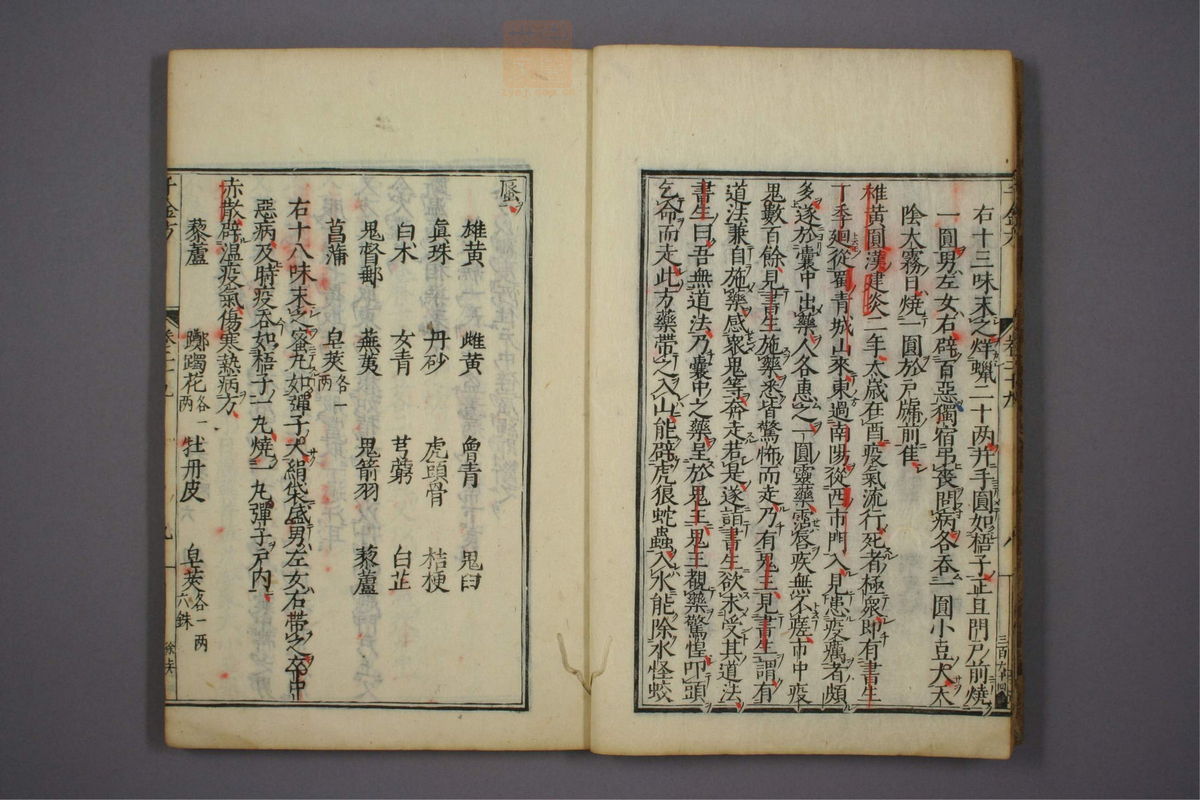 右十三味末之烊蠟二十两幷手圓如梧子正旦門戸前燒
一圓男左女右辟百惡獨宿吊喪問病各吞一圓小豆大天
陰大霧日燒一圓於戸牖前隹
雄黃圓漢建炎二年太歲在酉疫氣流行死者極衆即有書生
丁季廻從蜀青城山來東過南陽從西市門入見患疫癘者頗
多遂於囊中出藥人各惠之一圓靈藥霑脣疾無不瘥市中疫
鬼數百餘見書生施藥悉皆驚怖而走乃有鬼王見書生謂有
道法兼自施藥感衆鬼等奔走若是遂詣書生欲求受其道法
書生曰吾無道法乃囊中之藥呈於鬼王鬼王覩藥驚惶叩頭
乞命而走此方藥帶之入山能辟虎狼蛇蟲入水能除水怪蛟
千金方
卷二十九
八
蜃
雄黃 雌黃 曾青 鬼臼
眞珠 丹砂 虎頭骨 桔梗
白术 女青 芎藭 白芷
鬼督郵 蕪荑 鬼箭羽 藜蘆
菖蒲 皁莢各一两
右十八味末之蜜丸如彈子大絹袋盛男左女右帶之卒中
惡病及時疫吞如梧子一丸燒一丸彈子戸內
赤散辟溫疫氣傷寒熱病方
藜蘆 躑躅花各一两 牡丹皮 皁莢各一两六銖
千金方
卷二十九
九